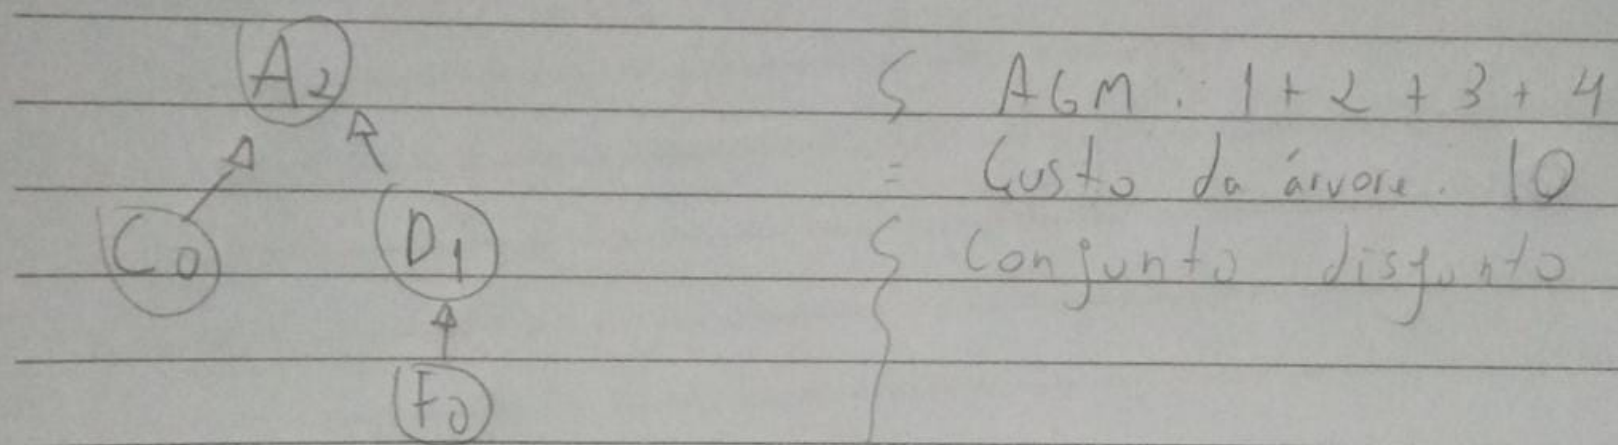 A2
C0
D1
F0
AGM. 1 + 2 + 3 + 4
= Custo da árvore. 10
Conjunto disjunto